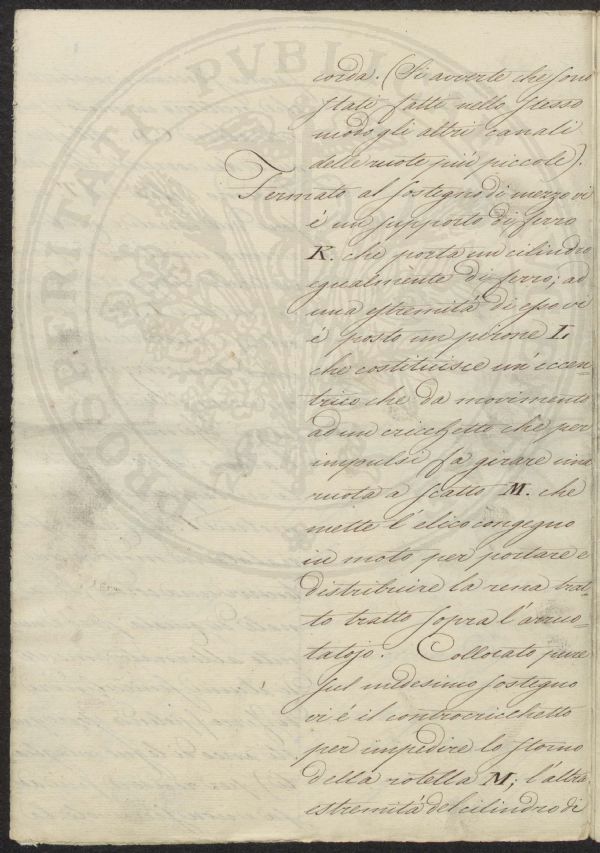 PROSPERITATI PVBLICAE
corda. (Si avverte che sono
stati fatti nello stesso
modo gli altri canali
delle ruote più piccole).
Fermato al sostegno di mezzo vi
é un supporto di ferro
K. che porta un cilindro
egualmente di ferro; ad
una estremitá di esso vi
é posto un pirone L
che costituisce un' eccen-
trico che da movimento
ad un cricchetto che per
impulsi fa girare una
ruota a scatto M. che
mette l' elico congegno
in moto per portare e
distribuire la rena trat-
to tratto sopra l' arruo-
tatojo. Collocato pure
sul medesimo sostegno
vi é il controcricchetto
per impedire lo storno
della rotella M; l' altra
estremitá del cilindro di